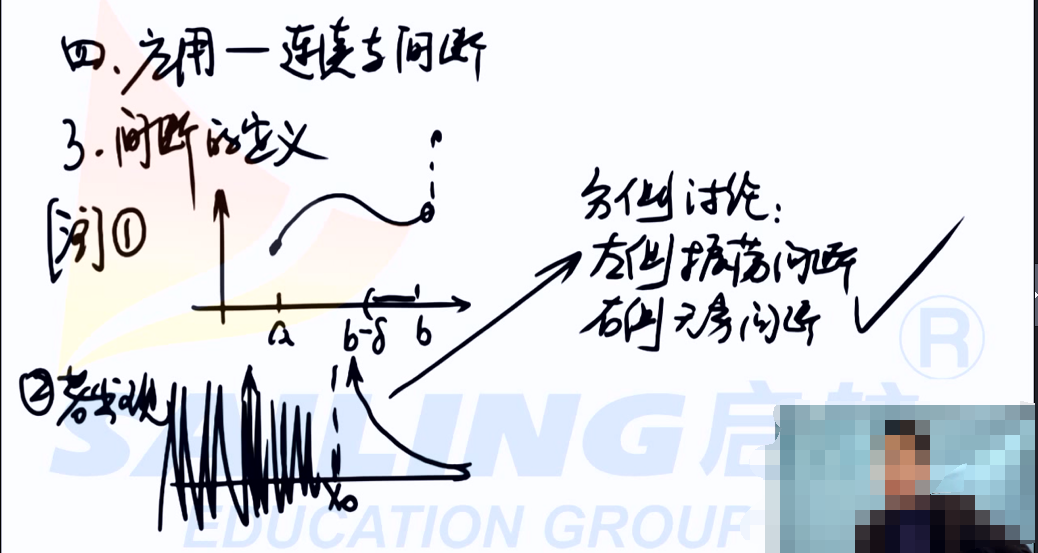 四、应用—连续与间断
3.间断的定义
[注]①
a b-δ b
分侧讨论：
左侧振荡间断
右侧无穷间断
②若出现
x₀
SAILING 启航
®
EDUCATION GROUP